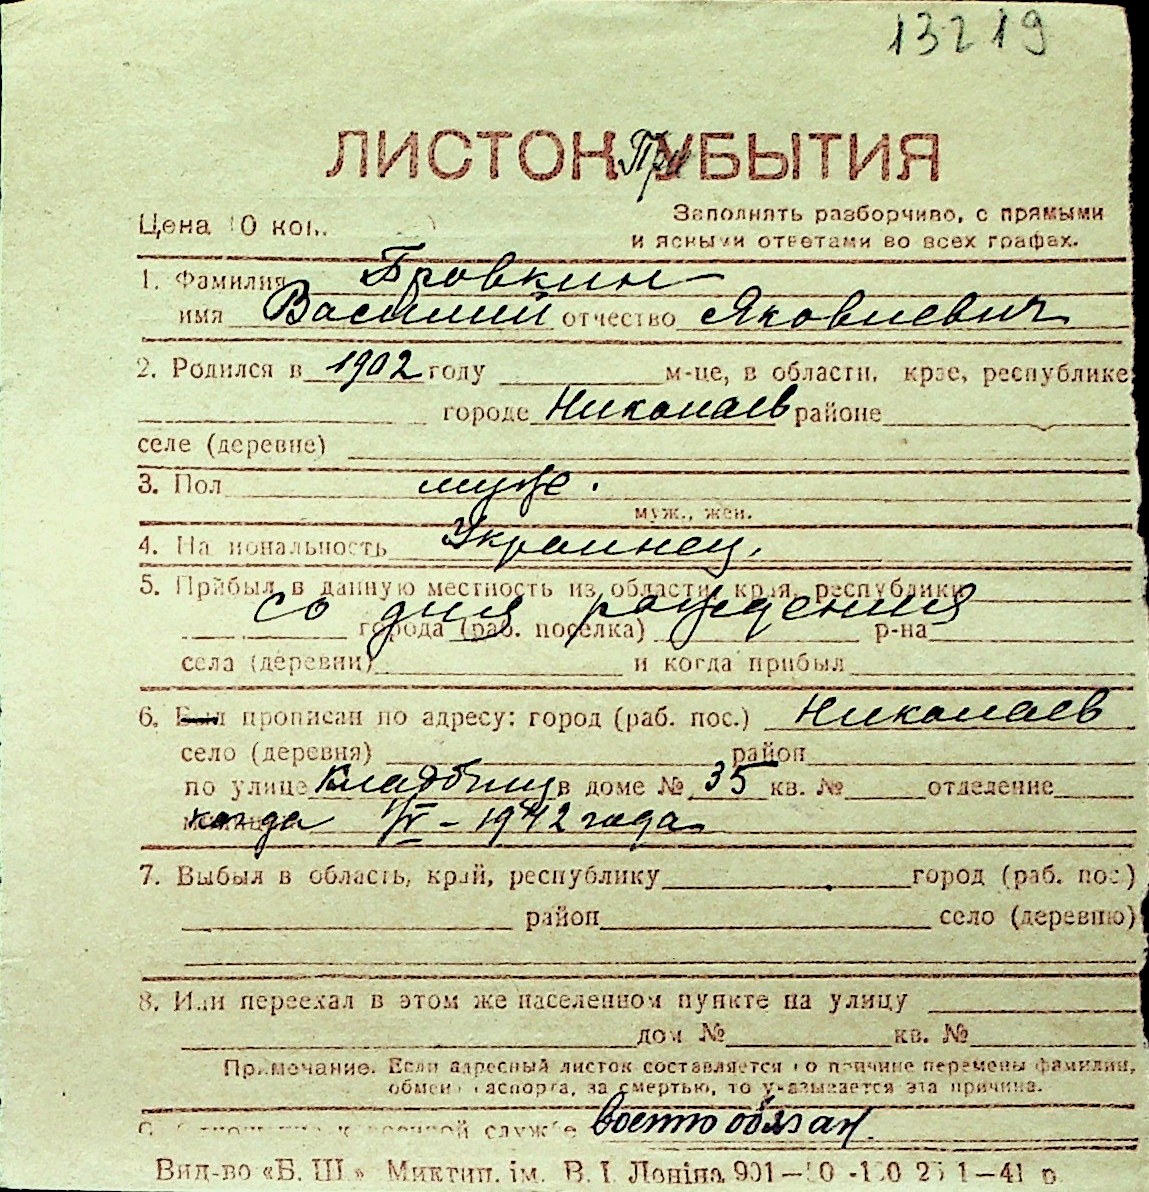 13219
ЛИСТОК При УБЫТИЯ
Цена 10 коп.
Заполнять разборчиво, с прямыми
и ясными ответами во всех графах.
1. Фамилия Бровкин
имя Василий отчество Яковлевич
2. Родился в 1902 году м-це, в области, крае, республике
городе Николаев районе
селе (деревне)
3. Пол муж.
муж., жен.
4. Национальность Украинец.
5. Прибыл в данную местность из области, края, республики
со дня рождения
города (раб. поселка) р-на
села (деревни) и когда прибыл
6. Был прописан по адресу: город (раб. пос.) Николаев
село (деревня) район
по улице Кладбищ в доме № 35 кв. № отделение
когда IV – 1942 года
7. Выбыл в область, край, республику город (раб. пос.)
район село (деревню)
8. Или переехал в этом же населенном пункте на улицу
дом № кв. №
Примечание. Если адресный листок составляется по причине перемены фамилии,
обмена паспорта, за смертью, то указывается эта причина.
военной службе военнообязан.
Вид-во «Б. Ш.» Миктип. ім. В. І. Леніна 901— 1—41 р.